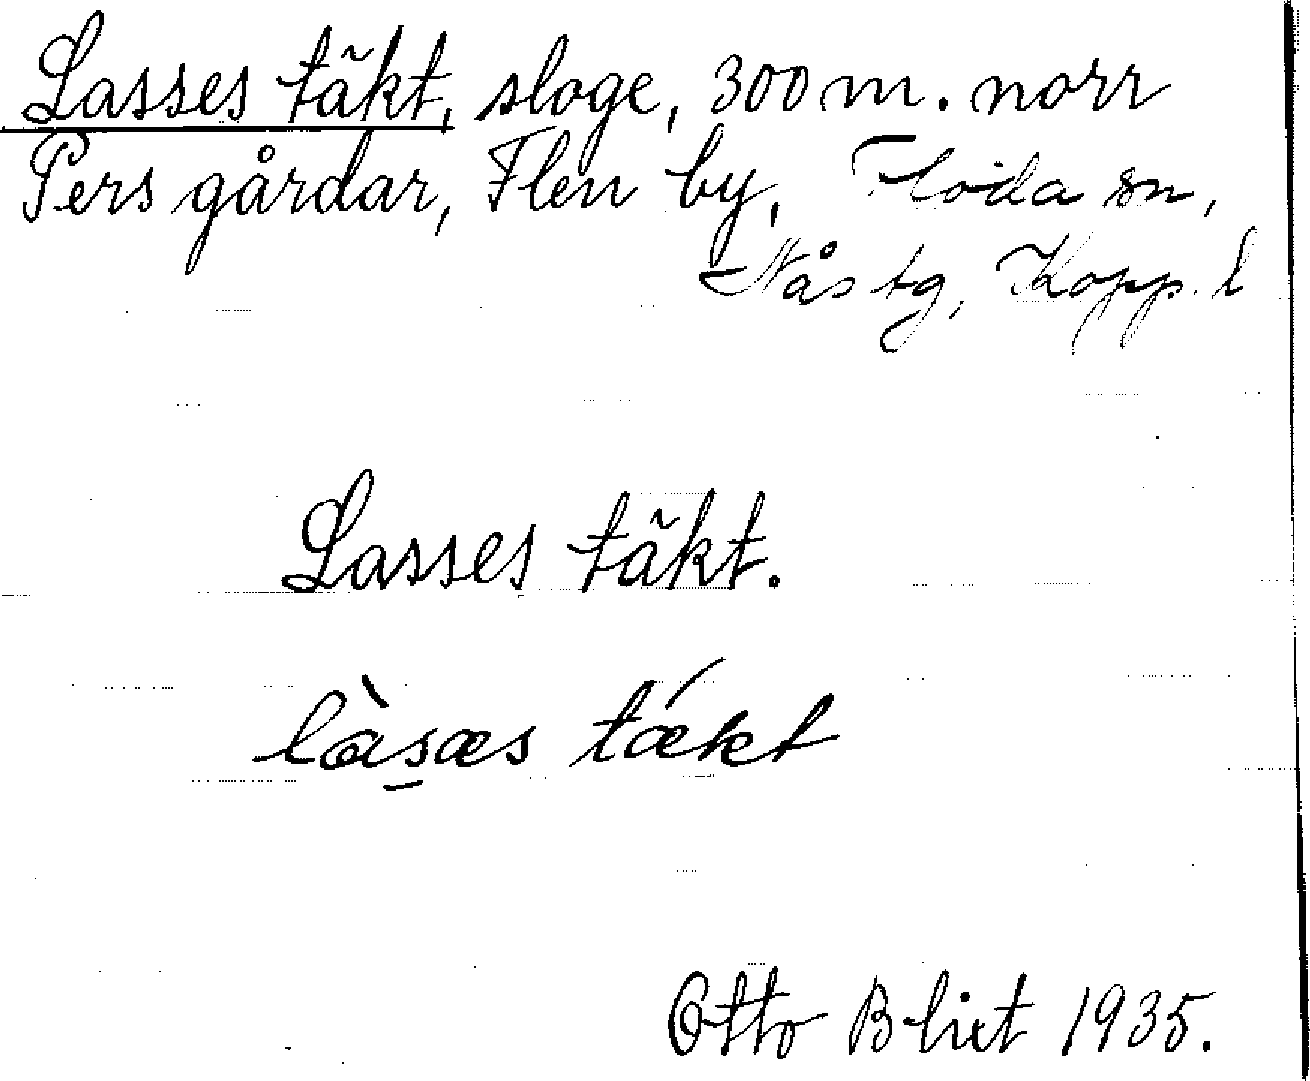 Lasses täkt, sloge, 300 m. norr
Pers gårdar, Flen by, Floda sn,
Nås tg, Kopp. l
Lasses täkt.
làsæs tǽkt
Otto Blixt 1935.